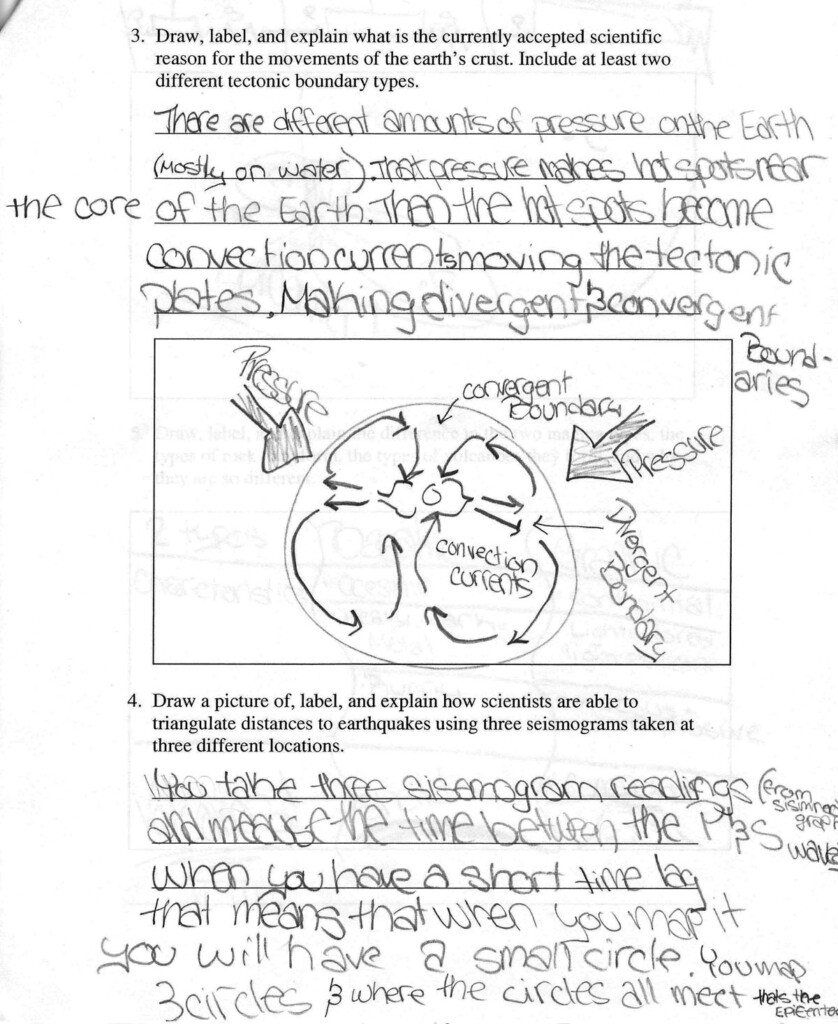 3. Draw, label, and explain what is the currently accepted scientific
reason for the movements of the earth's crust. Include at least two
different tectonic boundary types.
There are different amounts of pressure on the Earth
(Mostly on water). That pressure makes hot spots near
the core of the Earth. Then the hot spots become
convection currents moving the tectonic
plates. Making divergent & convergent
Bound-
aries
Pressure
convergent
Boundary
Pressure
Divergent
Boundary
convection
currents
4. Draw a picture of, label, and explain how scientists are able to
triangulate distances to earthquakes using three seismograms taken at
three different locations.
You take three sisemogram readings (from
and meause the time between the P & S waves
when you have a short time lag
that means that when you map it
you will have a small circle. You map
3 circles & where the circles all meet thats the